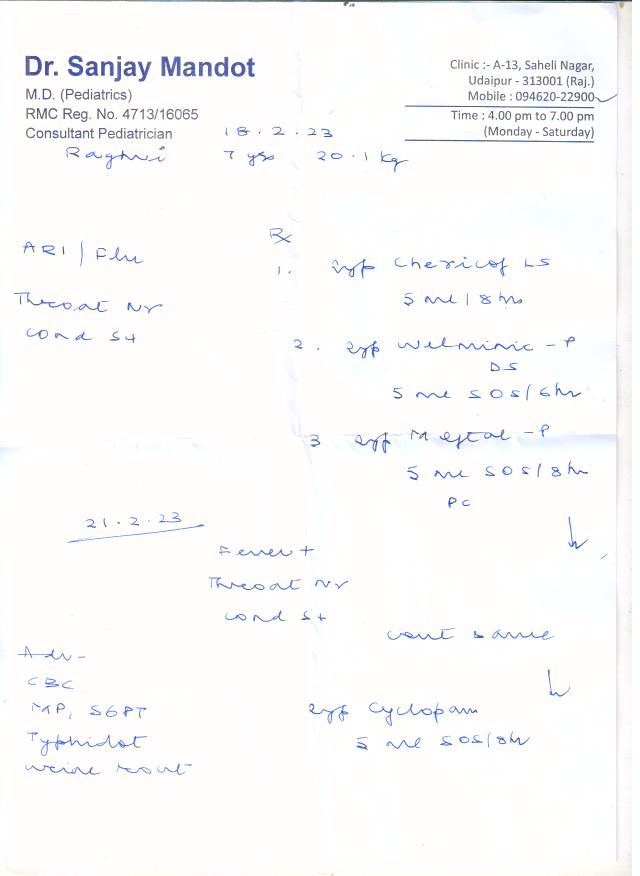 Dr. Sanjay Mandot
M.D. (Pediatrics)
RMC Reg. No. 4713/16065
Consultant Pediatrician
Clinic :- A-13, Saheli Nagar,
Udaipur - 313001 (Raj.)
Mobile : 094620-22900
Time : 4.00 pm to 7.00 pm
(Monday - Saturday)
18.2.23
Raghvi 7 yrs 20.1 kg
ARI / Flu
Throat Nr
cond S+
Rx
1. Syp Chericof LS
5 ml / 8 hrs
2. Syp Welminic - P
DS
5 ml SOS/6hr
3 Syp Meftal - P
5 ml SOS/8hr
PC
21.2.23
Fever +
Throat Nr
cond S+
cont same
Adv -
CBC
MP, SGPT
Typhidot
urine rout
Syp Cyclopam
5 ml SOS/8hr